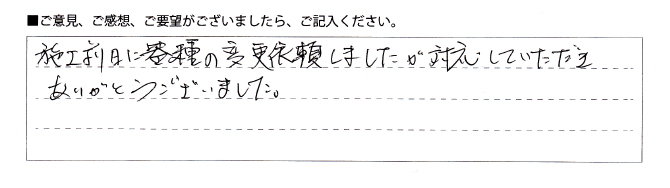 ■ご意見、ご感想、ご要望がございましたら、ご記入ください。
施工前日に器種の変更依頼しましたが対応していただき
ありがとうございました。